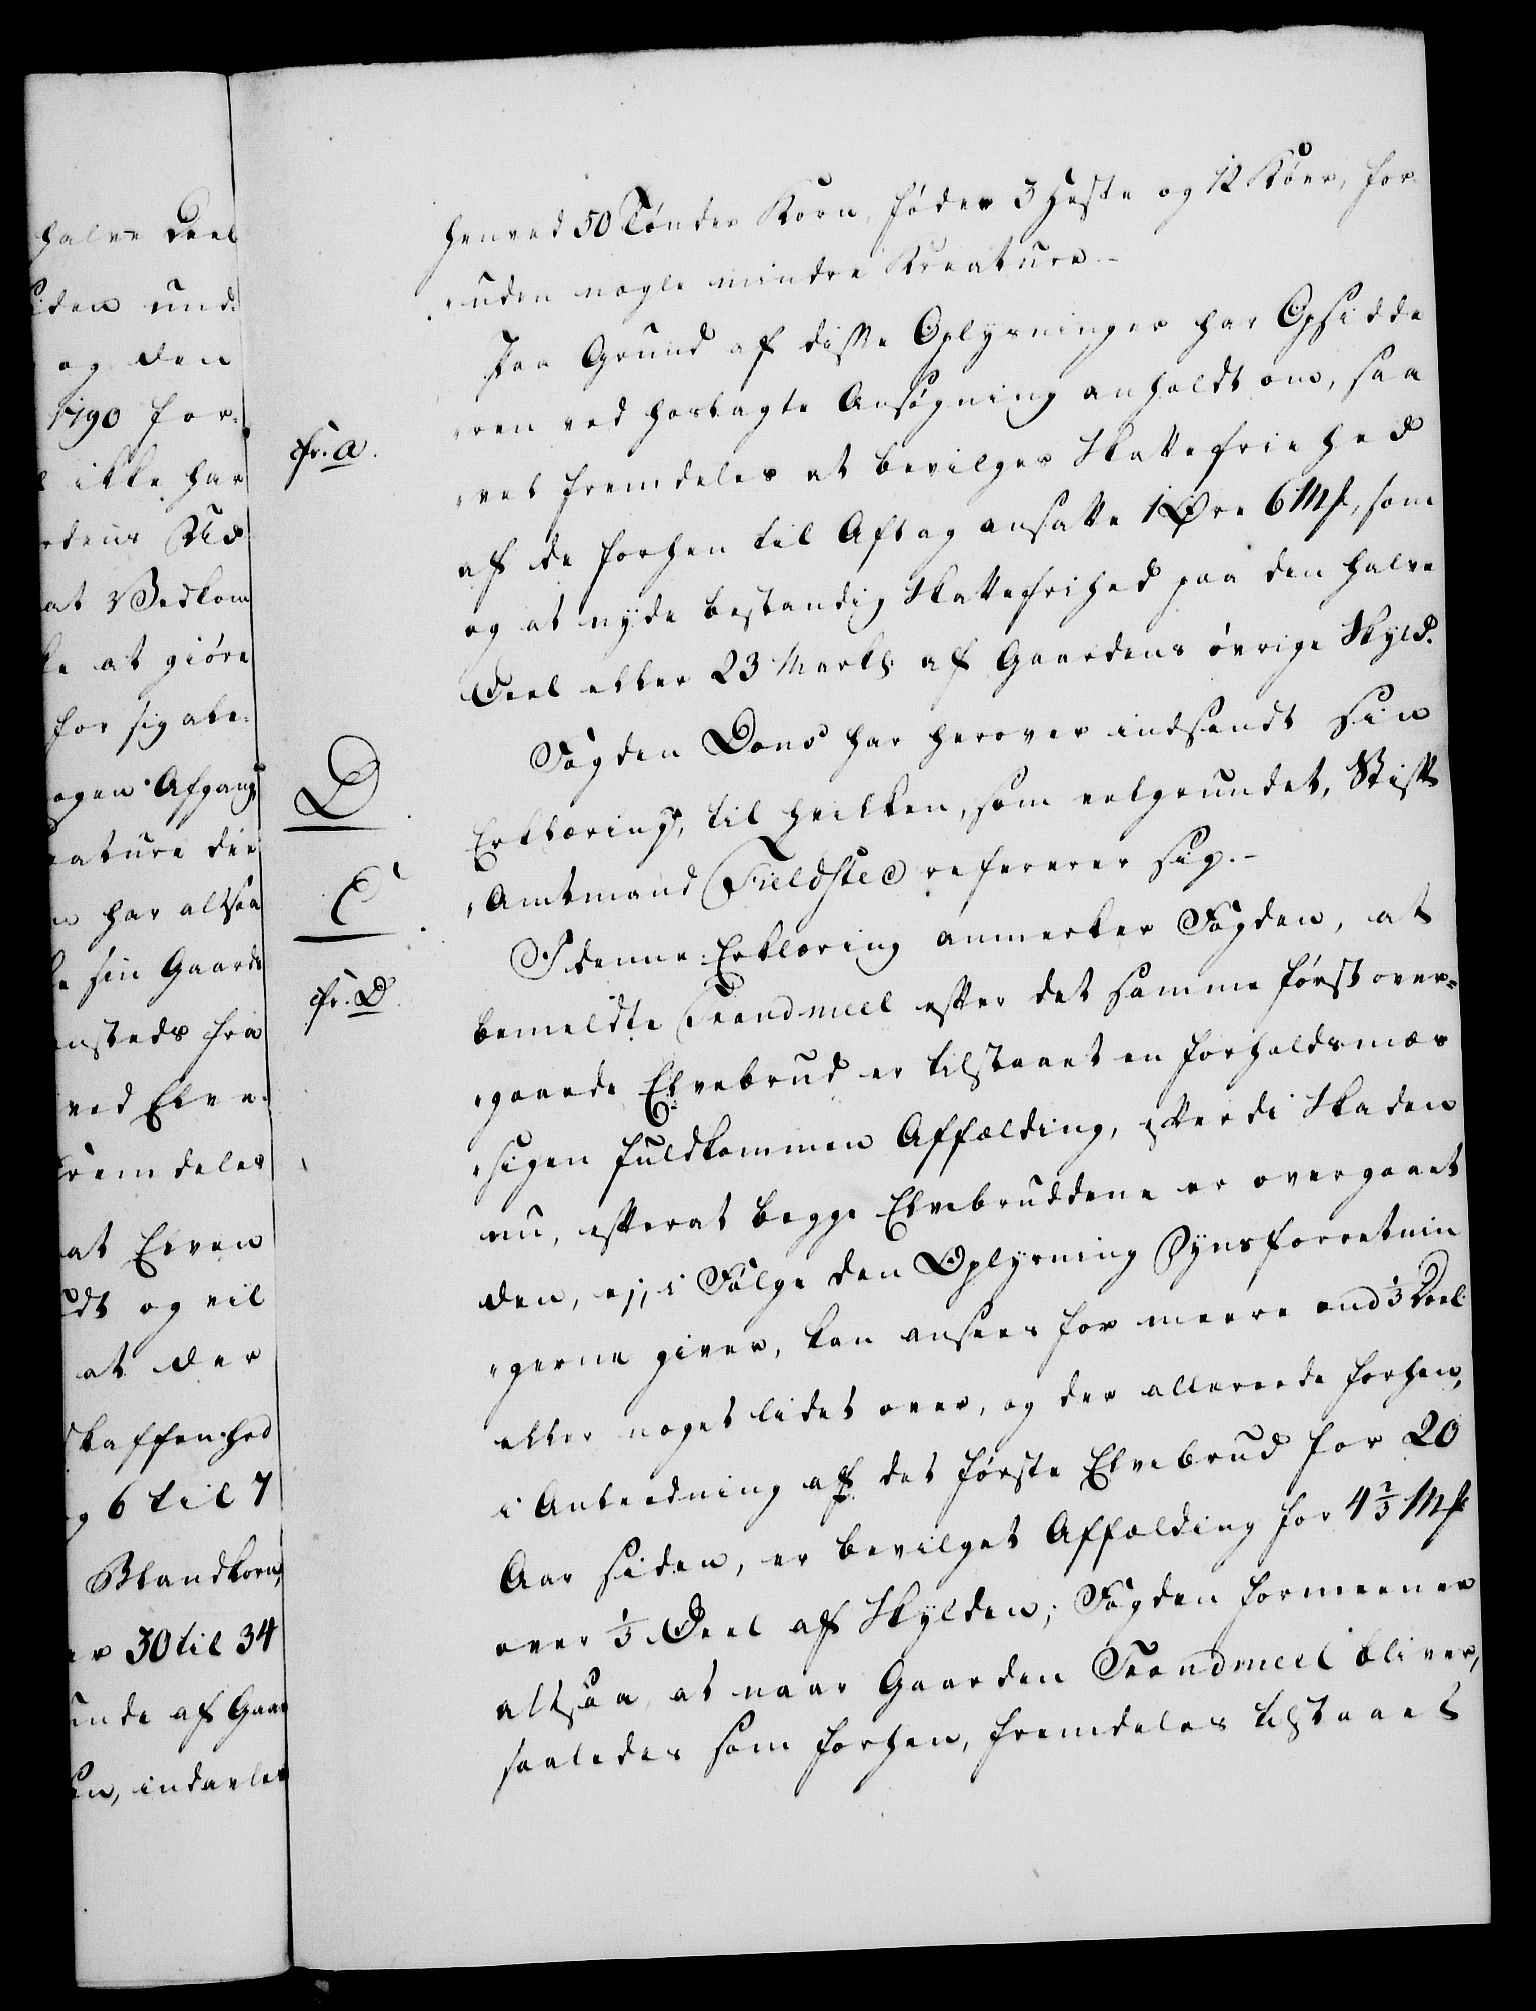 halve Deel
iden und:
og den
1790 for:
ikke har
rdens Ud
at Vedkom
ke at giöre
for sig ale:
ogen Afgang
eature die
n har altsaa
ke sin Gaards
ensteds fra
ved Elve:
fremdeles
at Elven
dt og vil
at der
Skaffenhed
og 6 til 7
Blandkorn,
er 30 til 34
unde af Gaar
en, indavles
henved 50 Tönder Korn, föder 3 Heste og 12 Köer, for
"uden nogle mindre Kreature. -
Paa Grund af disse Oplysninger har Opsidde
cfr. a.
"ren ved hoslagte Ansögning anholdt om, saa
"vel fremdeles at bevilges Skattefriehed
af de forhen til Aftag ansatte 1 Øre 6 Mk, som
og at nyde bestandig Skattefrihed paa den halve
Deel eller 23 Markl: af Gaardens övrige Skyld.
Fogden Dons har herover indsendt sin
D.
Erklæring, til hvilken, som velgrundet, Stift
E.
"Amtmand Fieldsted refererer sig. -
I denne Erklæring anmerker Fogden, at
cfr. D.
bemeldte Trondmeel efter det samme först over=
"gaaede Elvebrud er tilstaaet en forholdsmæs
"sigen fuldkommen Affælding, efterdi Skaden
nu, efterat begge Elvebruddene er overgaaet
den, ej, i Fölge den Oplysning Synsforretnin
"gerne giver, kan ansees for meere end 1/3 Deel
eller noget lidet over, og der allereede forhen,
i Anledning af det förste Elvebrud for 20
Aar siden, er bevilget Affælding for 4 2/3 Mk
over 1/3 Deel af Skylden; Fogden formeener
altsaa, at naar Gaarden Trondmeel bliver,
saaledes som forhen, fremdeles tilstaaet